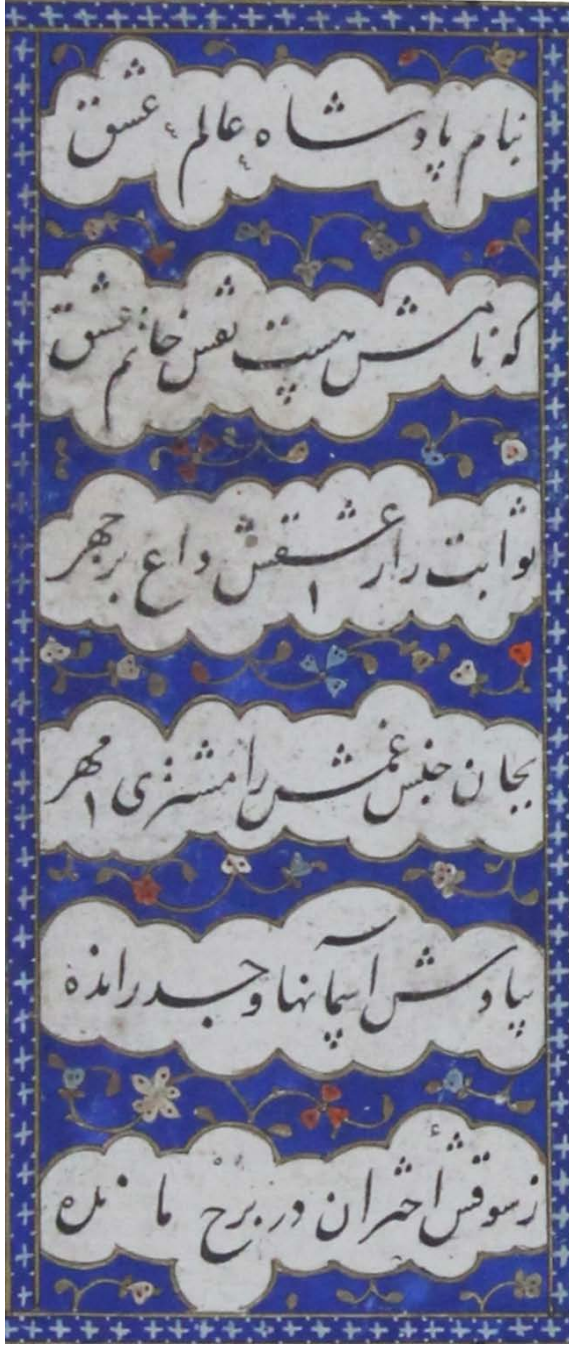 بنام پادشاه عالم عشق
که نامش هست نقش خاتم عشق
ثوابت را ز عشقش داغ بر چهر
بجان جنس غمش را مشتری مهر
بیادش آسمانها وجد رانده
ز سوقش اختران در برخ مانده